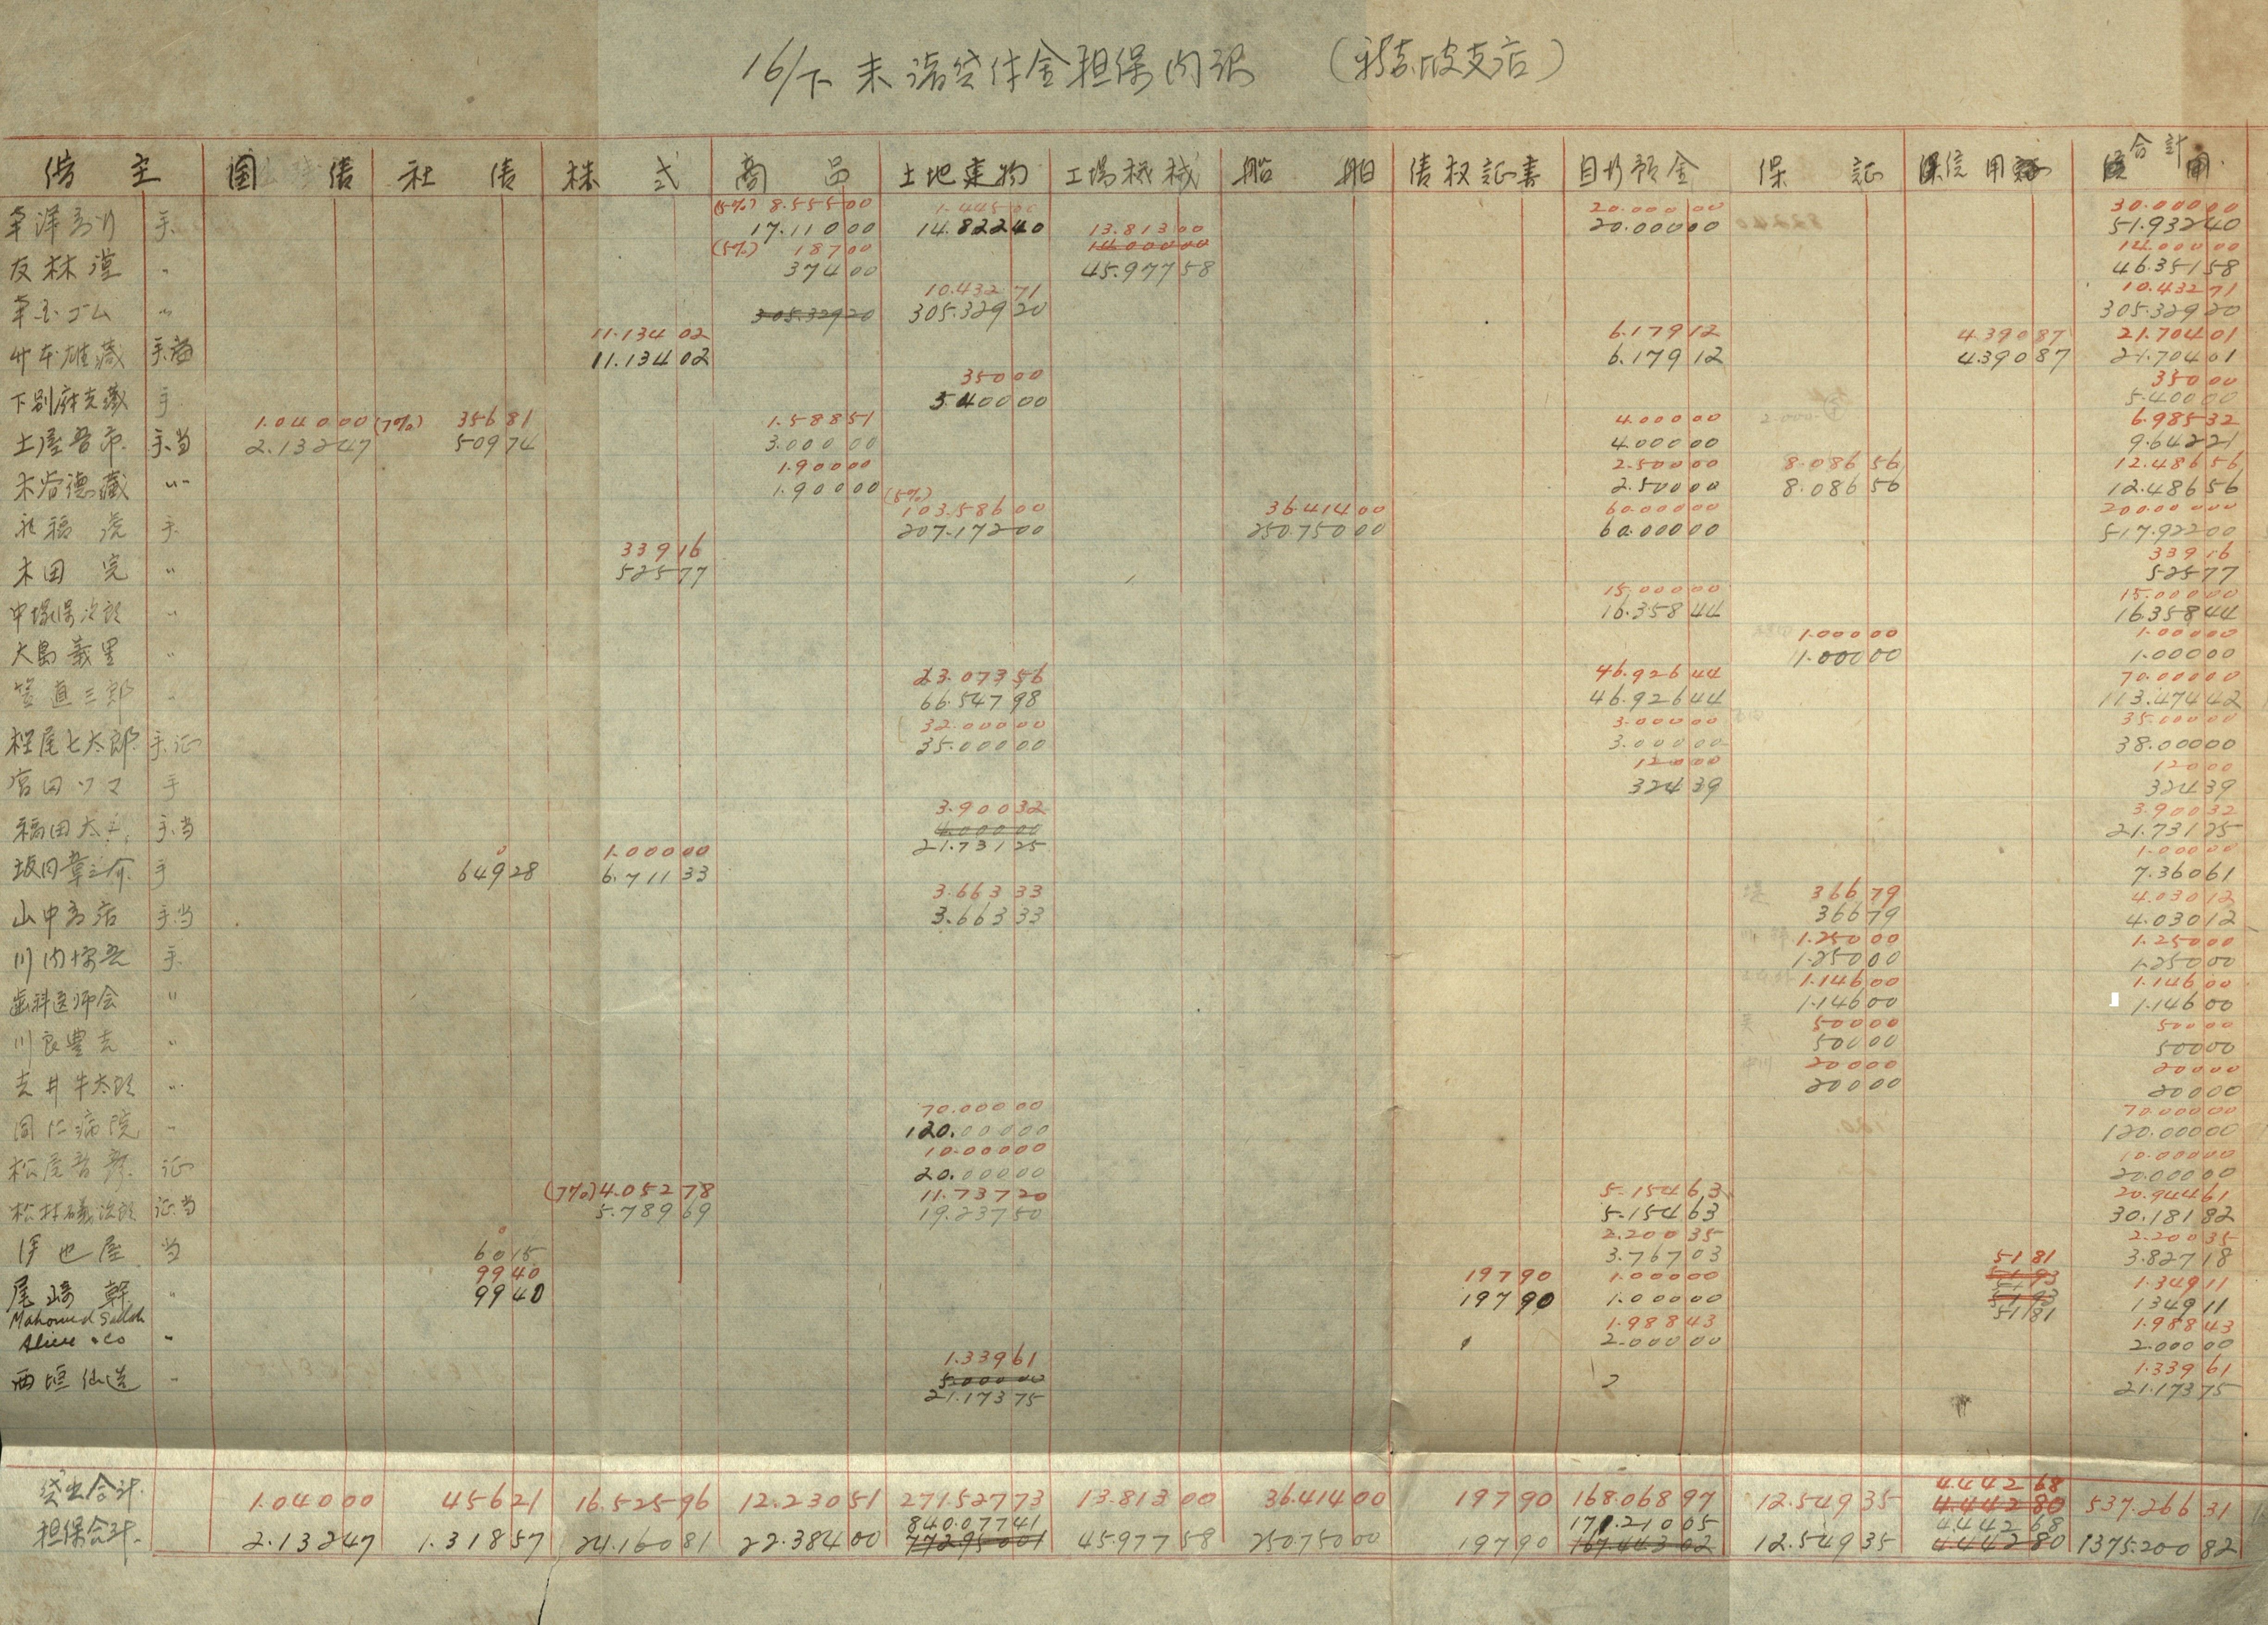 16/下 未済貸付金担保内訳 (新嘉坡支店)
借主 国債 社債 株式 商品 土地建物 工場機械 船舶 債权証書 自行預金 保証 信用 合計
(5%) 8.555 00 1.445 00 20.000 00 30.000 00
南洋商行 手. 17.110 00 14.822 40 13.813 00 20.000 00 51.932 40
(5%) 187 00 14.000 00 14.000 00
友林 〃 374 00 45.977 58 46.351 58
10.432 71 10.432 71
ゴム 〃 305.329 20 305.329 20 305.329 20
11.134 02 6.179 12 4.390 87 21.704 01
竹本雄蔵 手. 11.134 02 6.179 12 4.390 87 21.704 01
350 00 350 00
下別府克蔵 手 5.400 00 5.400 00
1.040 00 (7%) 356 81 1.588 51 4.000 00 6.985 32
土屋晋市. 手.当 2.132 47 509 74 3.000 00 4.000 00 9.642 21
1.900 00 2.500 00 8.086 56 12.486 56
木谷德蔵 〃 1.900 00 2.500 00 8.086 56 12.486 56
(5%) 103.586 00 36.414 00 60.000 00 200.000 00
永福虎 手. 207.172 00 250.750 00 60.000 00 517.922 00
339 16 339 16
木田完 〃 525 77 525 77
15.000 00 15.000 00
中塚保次郎 〃 16.358 44 16.358 44
1.000 00 1.000 00
大島義里 〃 1.000 00 1.000 00
23.073 56 46.926 44 70.000 00
笠直三郎 〃 66.547 98 46.926 44 113.474 42
32.000 00 3.000 00 35.000 00
桎尾七太郎 手.証 35.000 00 3.000 00 38.000 00
120 00 120 00
宮田ツマ 手 324 39 324 39
3.900 32 3.900 32
福田 手.当 4.000 00 21.731 25
0 1.000 00 21.731 25 1.000 00
坂田章之介. 手 649 28 6.711 33 7.360 61
3.663 33 366 79 4.030 12
山中商店 手.当 3.663 33 366 79 4.030 12
1.250 00 1.250 00
川内 手. 1.250 00 1.250 00
1.146 00 1.146 00
歯科医师会 〃 1.146 00 1.146 00
500 00 500 00
川良豊吉 〃 500 00 500 00
200 00 200 00
吉井牛太郎 〃 200 00 200 00
70.000 00 70.000 00
同仁病院 〃 120.000 00 120.000 00
10.000 00 10.000 00
松尾 証 20.000 00 20.000 00
(7%) 4.052 78 11.737 20 5.154 63 20.944 61
松林磯次郎 証.当 5.789 69 19.237 50 5.154 63 30.181 82
0 2.200 35 2.200 35
伊也屋 当 60 15 3.767 03 51 81 3.827 18
99 40 197 90 1.000 00 51 93 1.349 11
尾崎幹 〃 99 40 197 90 1.000 00 51 93 1.349 11
51 81
Mahomed 1.988 43 1.988 43
& Co 〃 2.000 00 2.000 00
1.339 61 1.339 61
西垣仙 〃 5.000 00 21.173 75
21.173 75
4.442 68
貸出合計. 1.040 00 456 21 16.525 96 12.230 51 271.527 73 13.813 00 36.414 00 197 90 168.068 97 12.549 35 4.442 80 537.266 31
840.077 41 171.210 05 4.442 68
担保合計. 2.132 47 1.318 57 24.160 81 22.384 00 772.950 01 45.977 58 250.750 00 197 90 167.443 02 12.549 35 4.442 80 1375.200 82